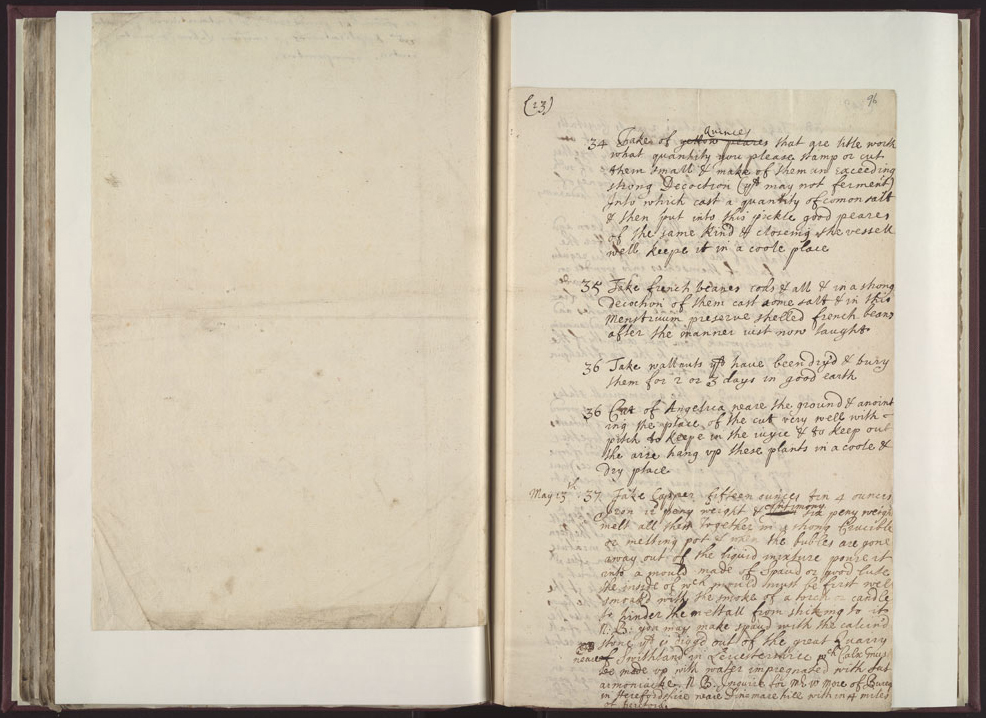 (23)
96
Quinces
34 Take of yellow peares that are litle worth
what quantity you please stamp or cut
them small & make of them an exceeding
strong Decoction (yt may not ferment)
Into which cast a quantity of comon salt
& then put into this pickle good peares
of the same kind & closeing the vessell
well keepe it in a coole place
35 Take french beanes cods & all & in a strong
Decoction of them cast some salt & in this
Menstruum preserve shelled french beans
after the manner iust now taught
36 Take wallnuts yt have been dry'd & bury
them for 2 or 3 days in good earth
36 Cut of Angelica neare the ground & anoint
ing the place of the cut very well with
pitch to keepe in the iuyce & to keep out
the aire hang up these plants in a coole &
Dry place
May 13th 37 Take Copper fifteen ounces tin 4 ounces
Antimony
Iron 12 peny weight & six peny weight
melt all them together in a strong Crucible
or melting pot & when the bubles are gone
away out of the liquid mixture poure it
into a mould made of Spaud or good lute
the inside of wch mould must be first well
smoaked with the smoke of a torch or candle
to hinder the mettall from sticking to it
N. B: you may make spaud with the calcind
stone yt is digged out of the great Quarry
neare of Swithland in Leicestershire wch Calx must
be made up with water impregnated with Sal
armoniacke. N. B. Inquire for Mr W More of
in Herefordshire neare Dinmare hill within 4 miles
of